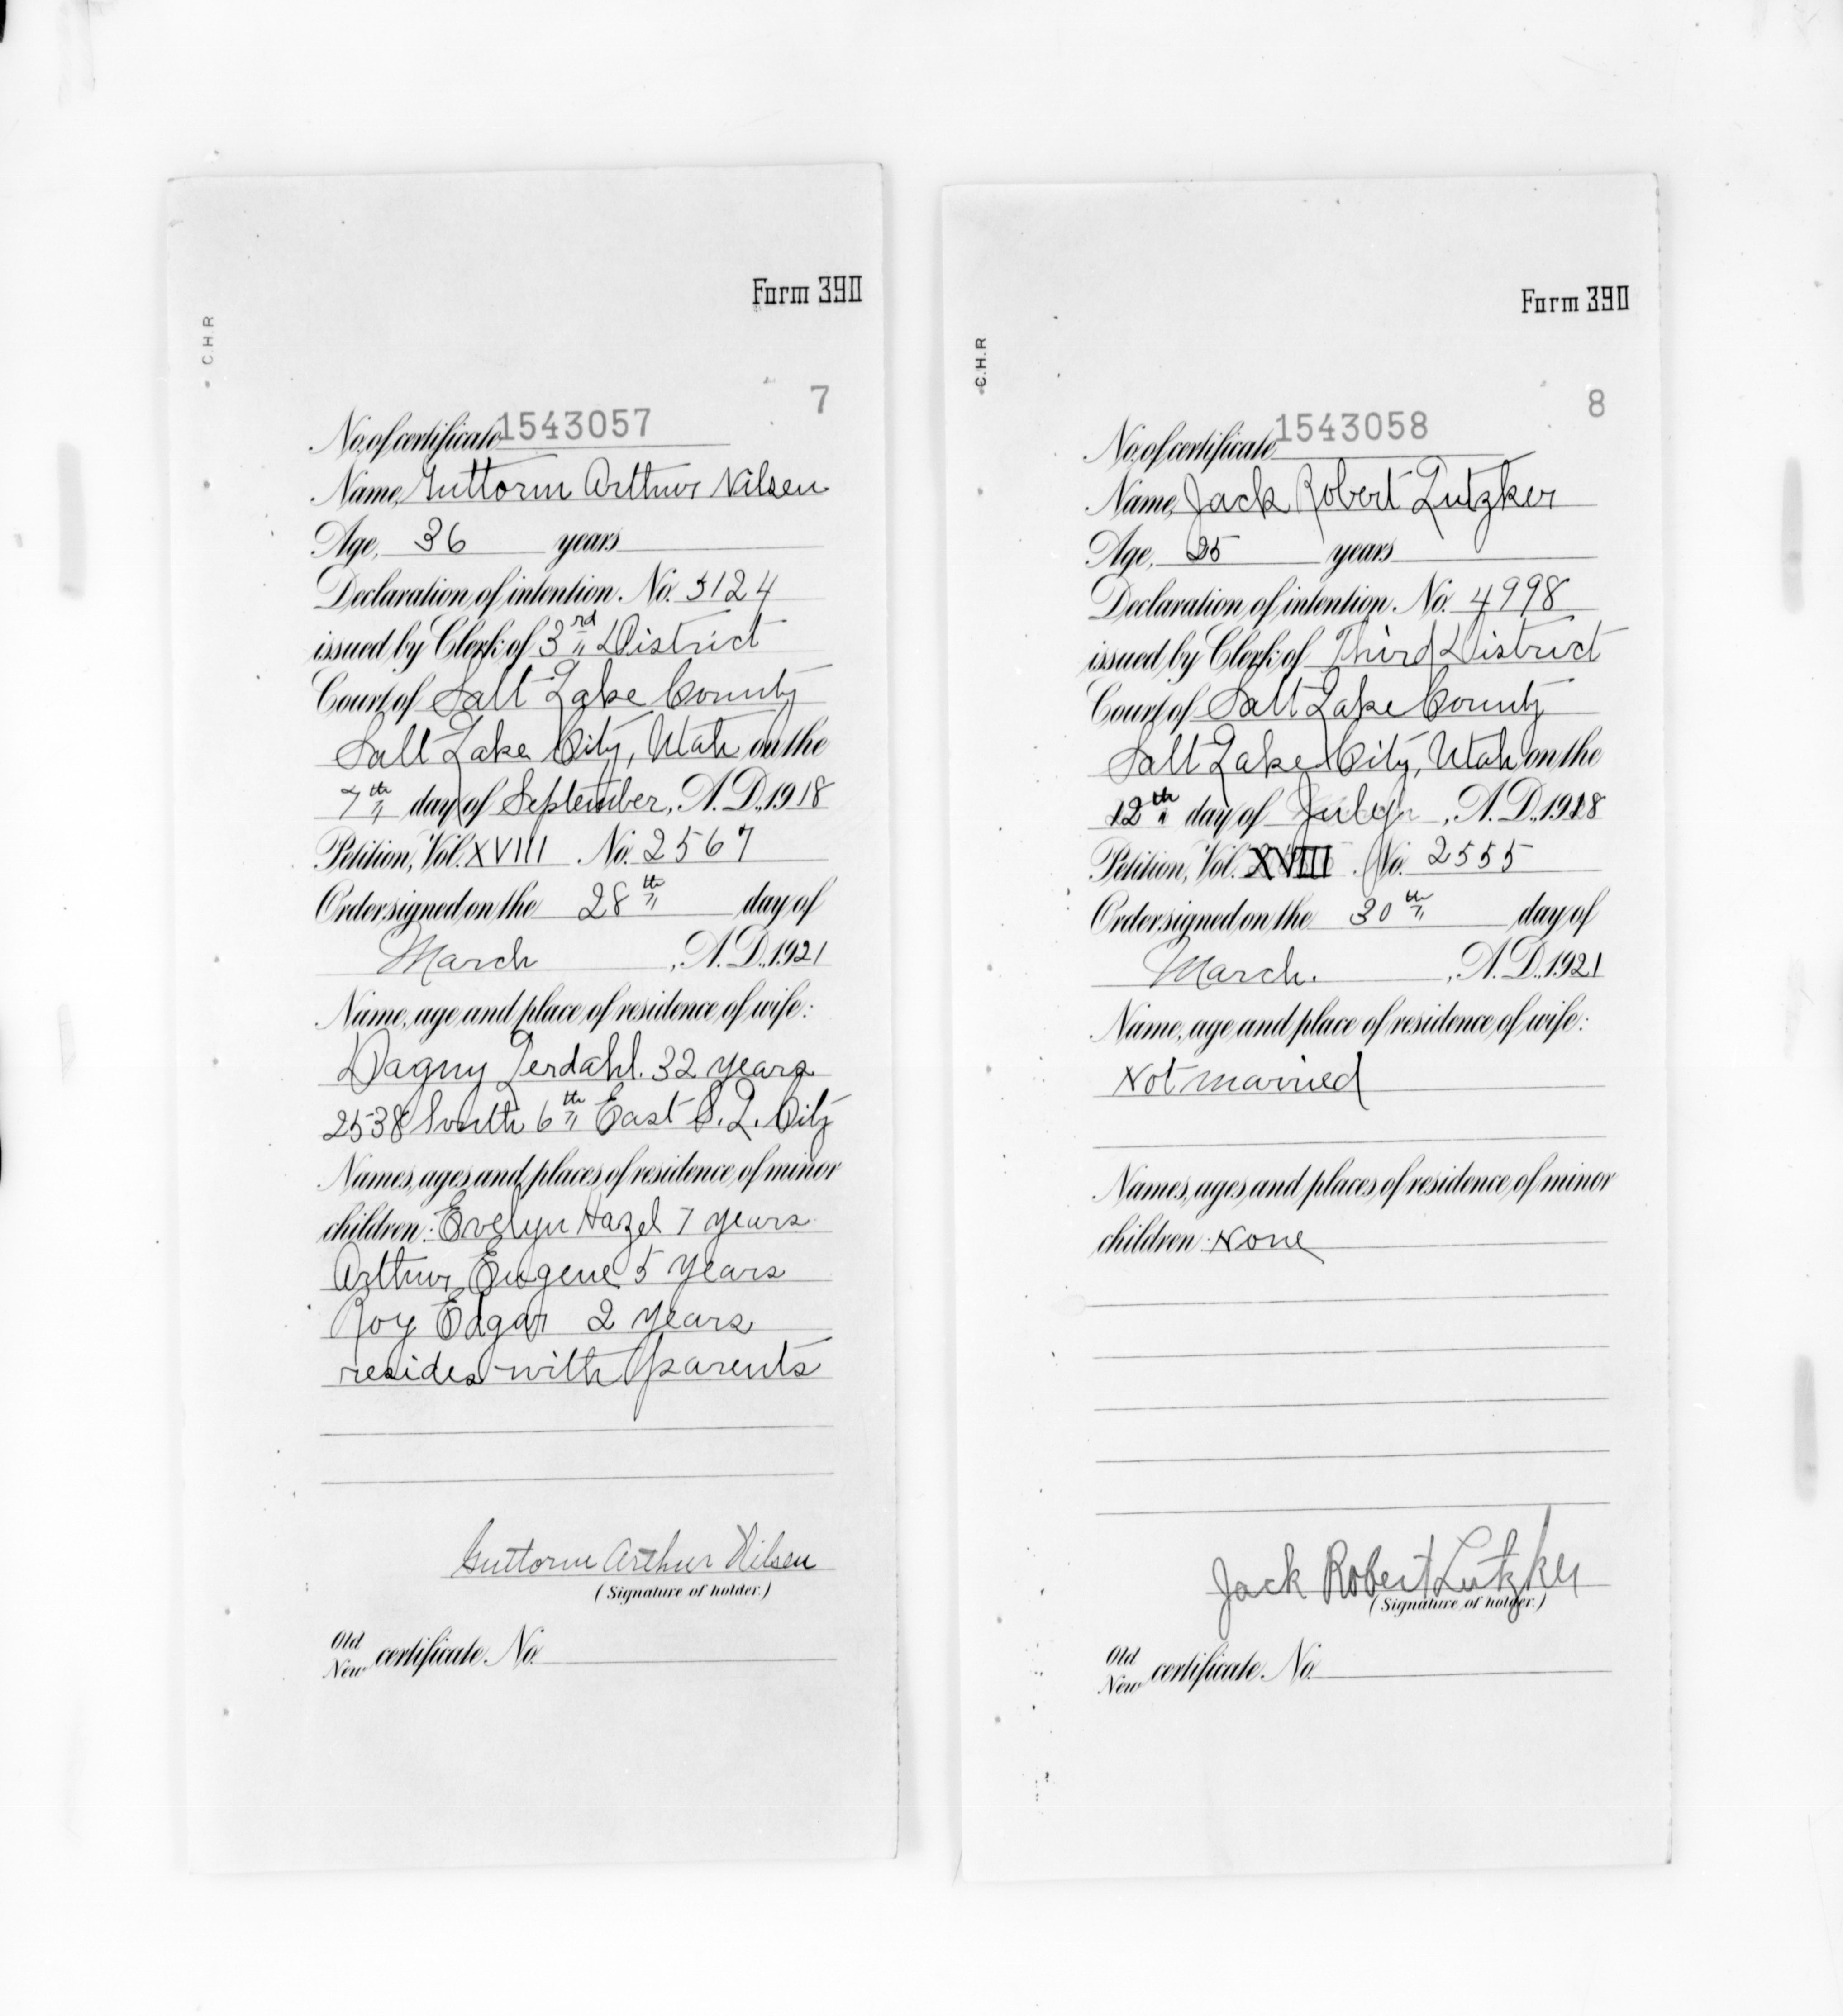 Form 390
C.H.R
7
No. of certificate 1543057
Name, Guttorm Arthur Nilsen
Age, 36 years
Declaration of intention. No. 5124
issued by Clerk of 3rd District
Court of Salt Lake County
Salt Lake City, Utah on the
7th day of September, A.D., 1918
Petition, Vol. XVIII No. 2567
Order signed on the 28th day of
March, A.D., 1921
Name, age and place of residence of wife:
Dagny Gerdahl. 32 years
2538 South 6th East S. L. City
Names, ages, and places of residence of minor
children: Evelyn Hazel 7 years
Arthur Eugene 5 years
Roy Edgar 2 years
resides with parents
Guttorm Arthur Nilsen
(Signature of holder.)
Old
New certificate No.
Form 390
C.H.R
8
No. of certificate 1543058
Name, Jack Robert Lutzker
Age, 25 years
Declaration of intention. No. 4998
issued by Clerk of Third District
Court of Salt Lake County
Salt Lake City, Utah on the
12th day of July, A.D., 1918
Petition, Vol. XVIII No. 2555
Order signed on the 30th day of
March., A.D., 1921
Name, age and place of residence of wife:
Not married
Names, ages, and places of residence of minor
children: None
Jack Robert Lutzker
(Signature of holder.)
Old
New certificate No.